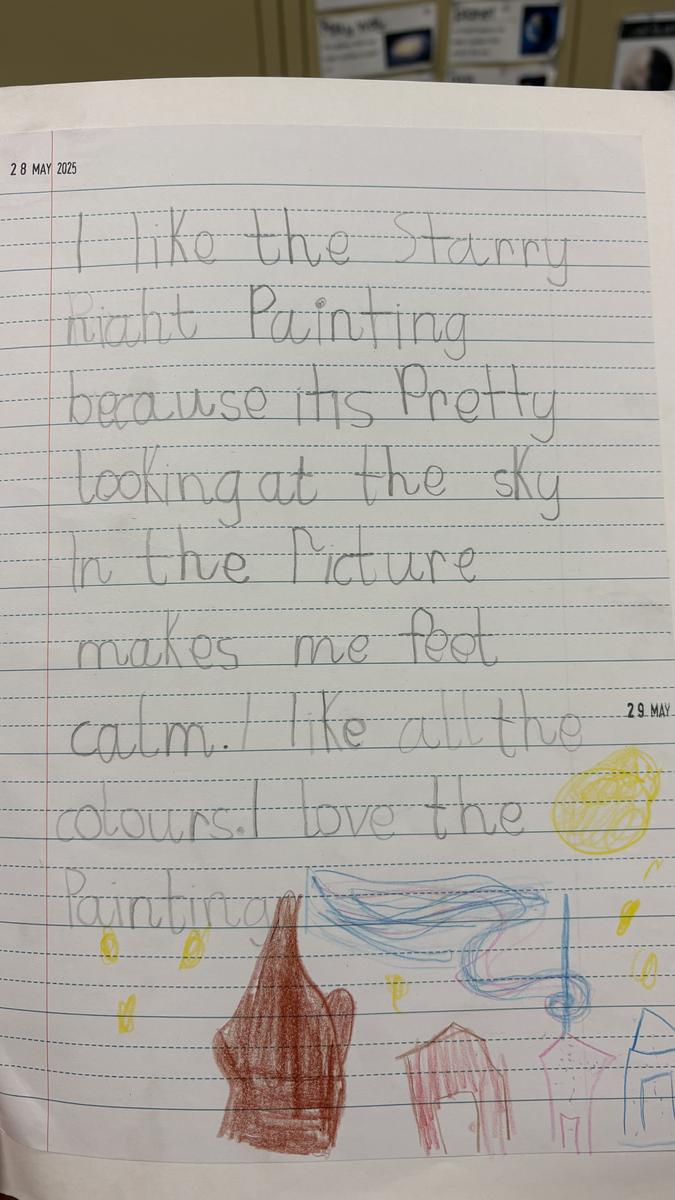 28 MAY 2025
I like the Starry
Night Painting
because it's Pretty
looking at the sky
In the Picture
makes me feel
calm. I like all the
29 MAY
colours. I love the
Painting